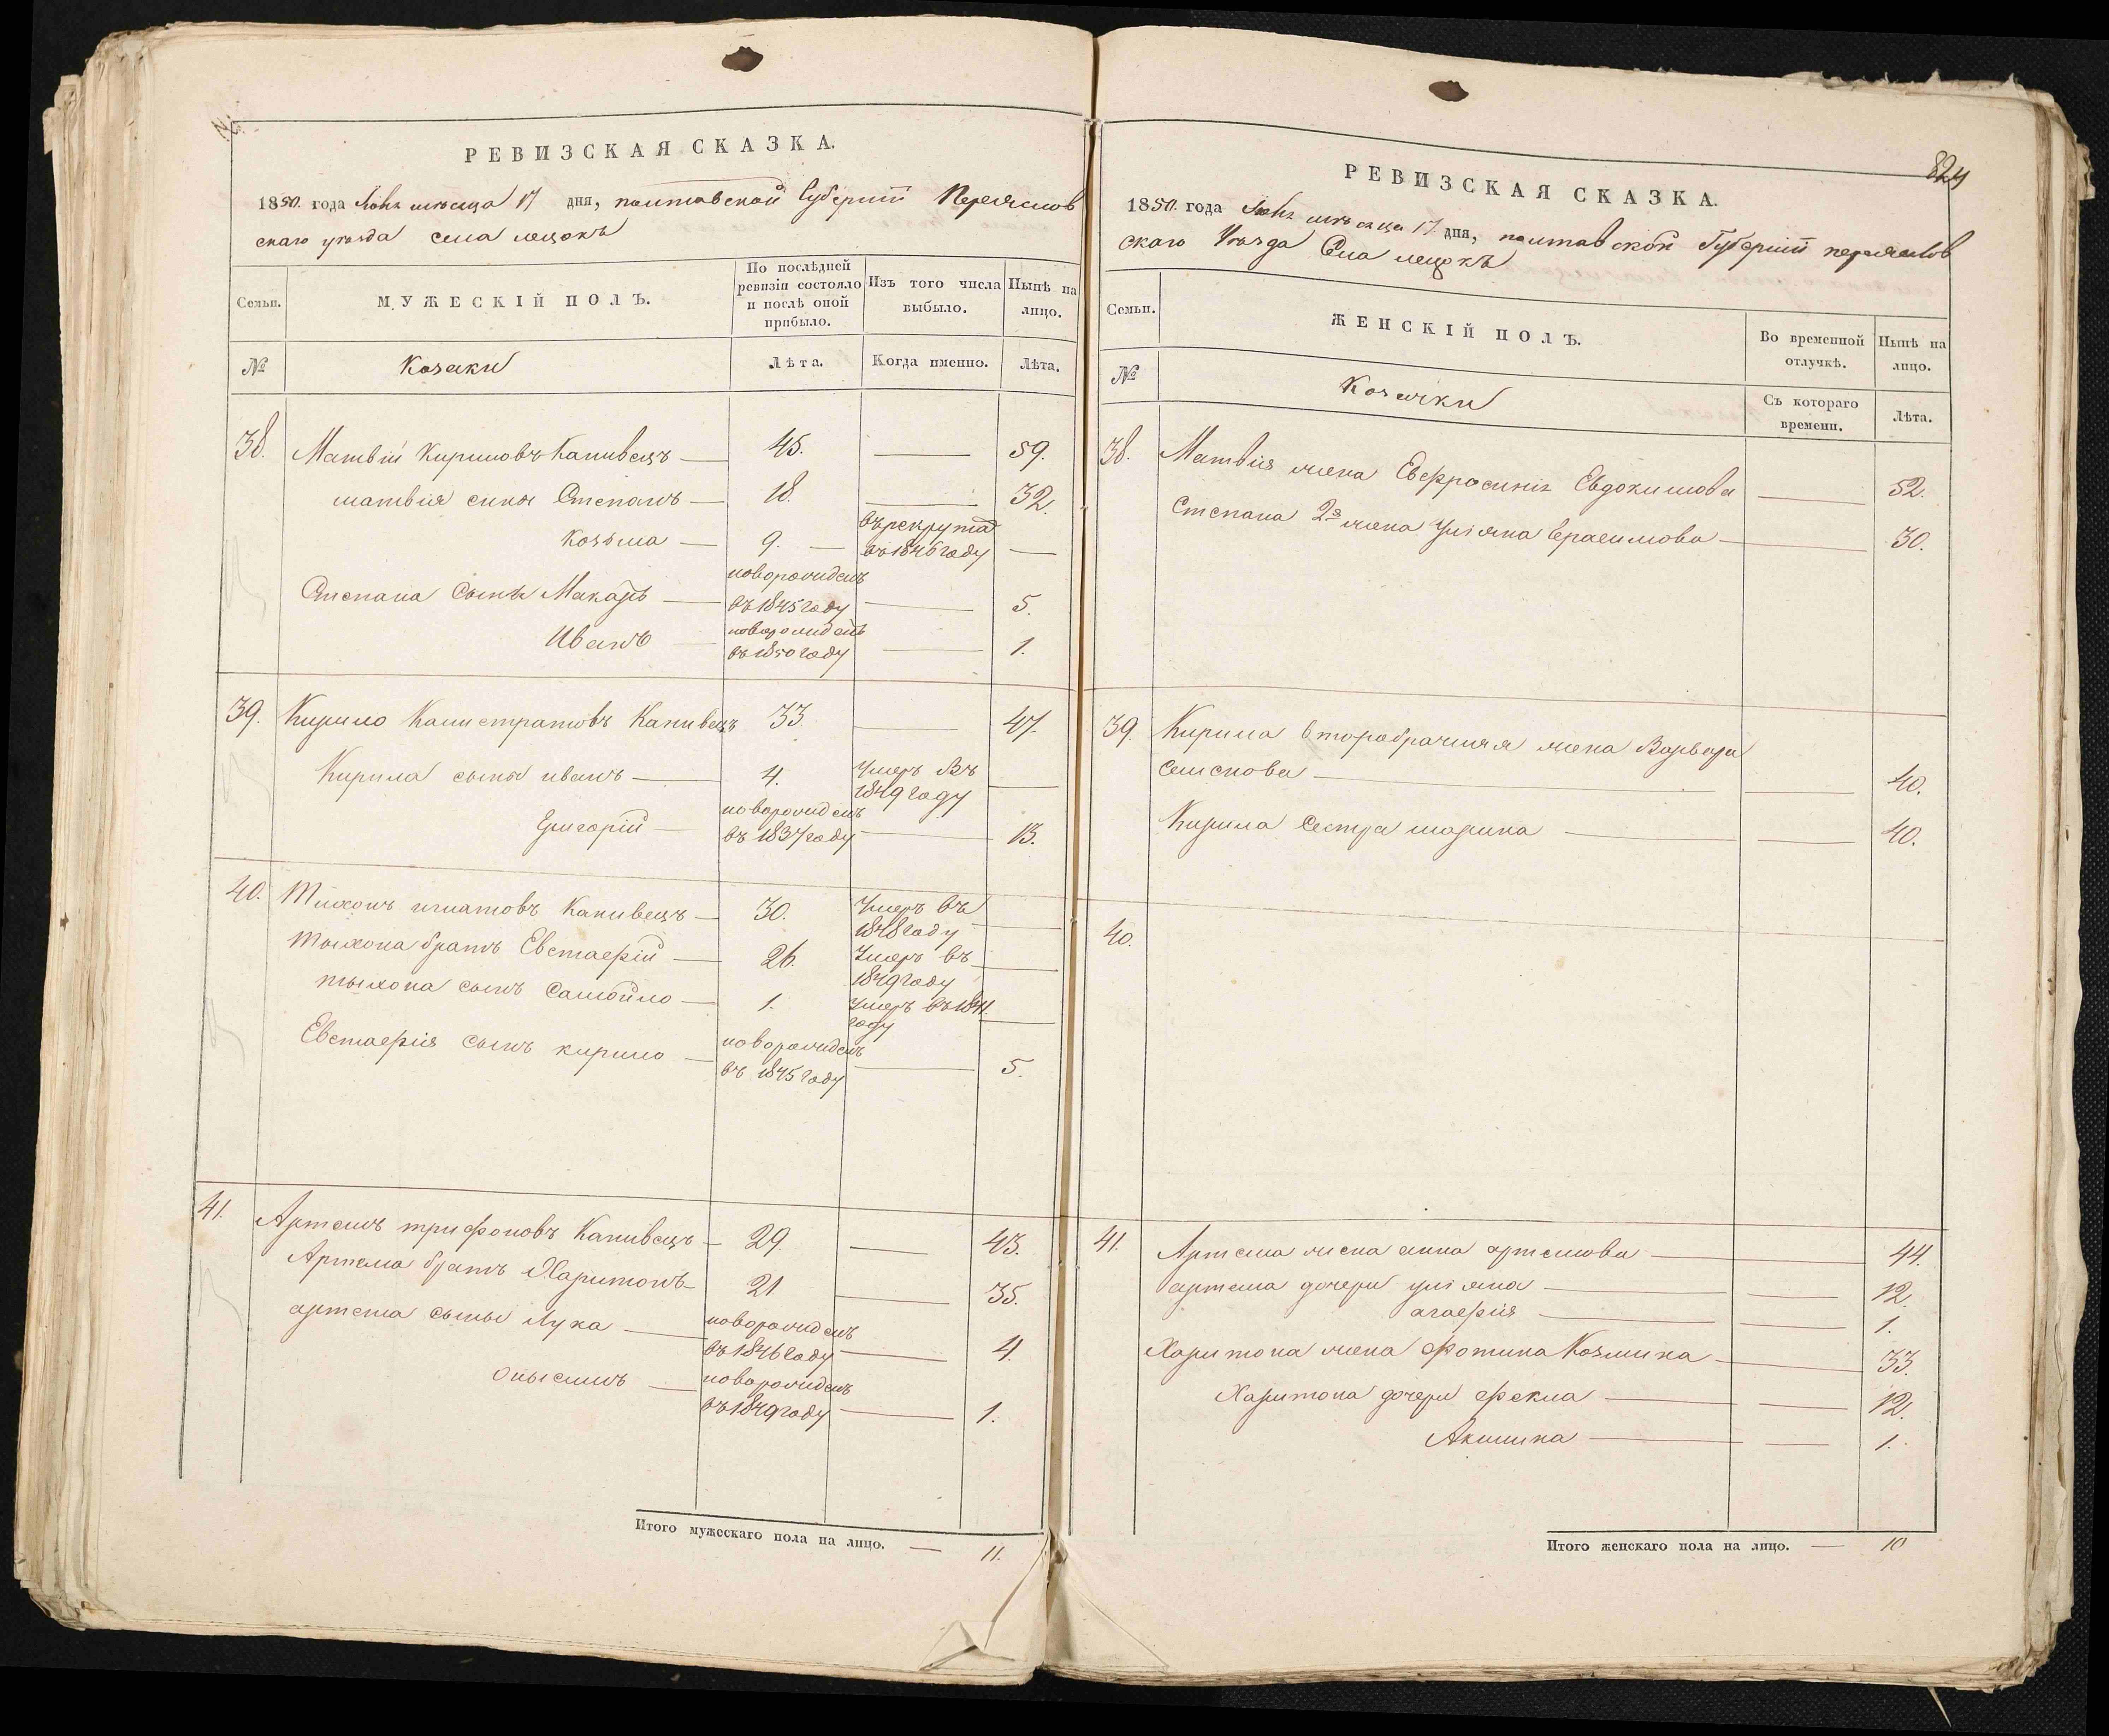 РЕВИЗСКАЯ СКАЗКА.
1850. года Июня месяца 17 дня, полтавской Губерніи Переяслов
скаго уѣзда села лецокъ
Семьи. МУЖЕСКІЙ ПОЛЪ. По послѣдней ревизіи состояло и послѣ оной прибыло. Изъ того числа выбыло. Нынѣ на лицо.
№ Козаки Лѣта. Когда именно. Лѣта.
38. Матвій Кириловъ Канивецъ — 45. — 59.
матвія сины Степанъ — 18. — 32.
Козьма — 9. — въ рекрута въ 1846 году —
Степана Сынъ Макаръ — новорожденъ въ 1845 году — 5.
Иванъ — новорожденъ въ 1850 году — 1.
39. Кирило Калистратовъ Канивецъ 33. — 47.
Кирила сыны иванъ — 4. Умеръ въ 1849 году —
Григорій — новорожденъ въ 1837 году — 13.
40. Тихонъ игнатовъ Канивецъ — 30. Умеръ въ 1848 году —
тыхона братъ Евстафій — 26. Умеръ въ 1849 году —
тыхона сынъ Самойло — 1. Умеръ въ 1841. году —
Евстафія сынъ кирило — новорожденъ въ 1845 году — 5.
41. Артемъ трифоновъ Канивецъ — 29. — 43.
Артема братъ Харитонъ — 21 — 35.
артема сыны Лука — новорожденъ въ 1846 году — 4.
Онысимъ — новорожденъ въ 1849 году — 1.
Итого мужескаго пола на лицо. — 11.
824
РЕВИЗСКАЯ СКАЗКА.
1850. года Июня месяца 17. дня, полтавской Губерніи переяслов
скаго Уѣзда Села лецокъ
Семьи. ЖЕНСКІЙ ПОЛЪ. Во временной отлучкѣ. Нынѣ на лицо.
№ Козачки Съ котораго времени. Лѣта.
38. Матвія жена Евфросинія Евдокимова — 52.
Степана 2я жена Уліяна Герасимова — 30.
39. Кирила второбрачная жена Варвара
Семенова — — 40.
Кирила Сестра марина — — 40.
40.
41. Артема жена анна артемова — 44.
артема дочери уліяна — — 12.
агафія — — 1.
Харитона жена фотина Козмина — 33.
Харитона дочери фекла — — 12.
Акилина — — 1.
Итого женскаго пола на лицо. — 10